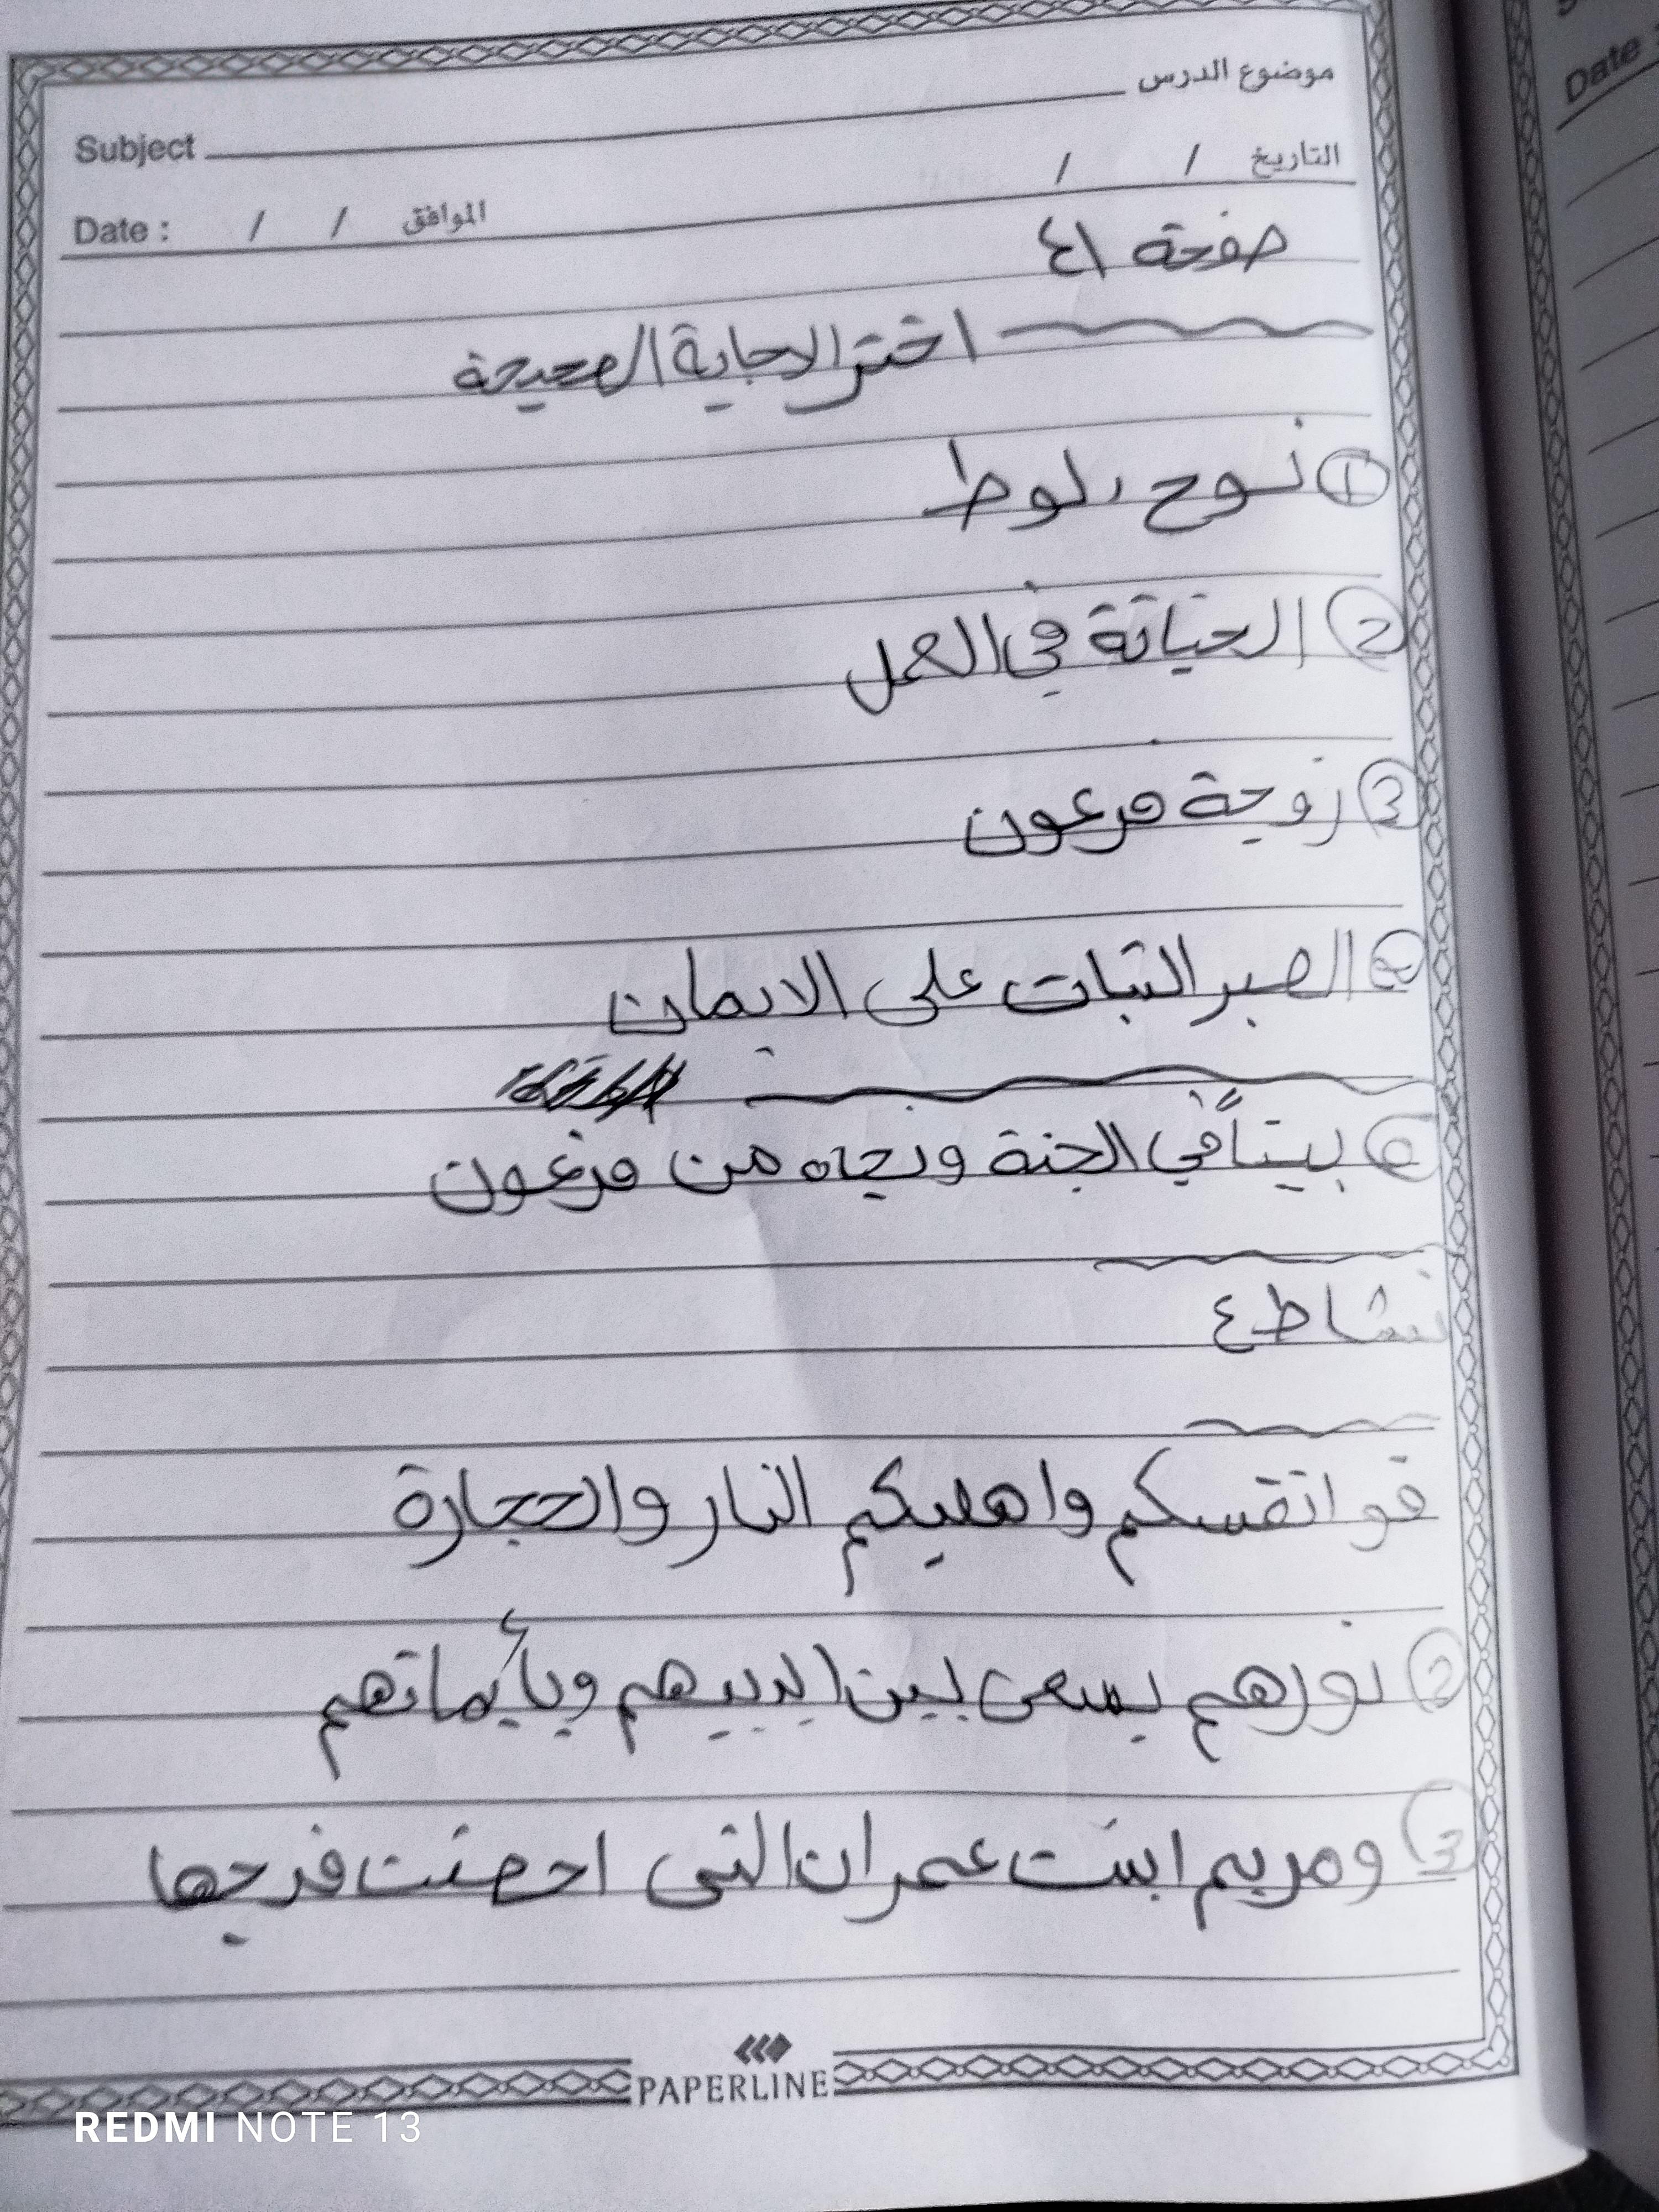 موضوع الدرس
Subject
التاريخ / /
Date : / / الموافق
صفحة ٤١
اختر الاجابة الصحيحة
① نوح رلوط
② الخيانة في العمل
③ زوجة فرعون
الصبر الثبات على الايمان
⑥ بيتاً في الجنة ونجاه من فرعون
نشاط ٤
قو انفسكم واهليكم النار والحجارة
② نورهم يسعى بين ايدييهم وبأيمانهم
③ ومريم ابنت عمران التى احصنت فرجها
PAPERLINE
Date :
REDMI NOTE 13